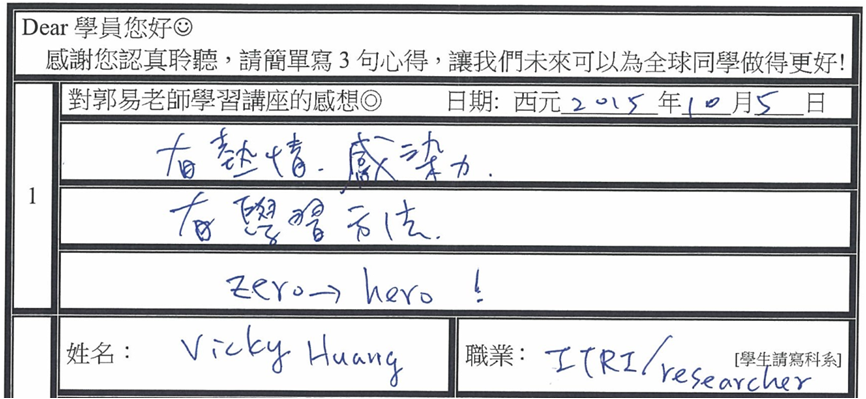 Dear 學員您好☺
感謝您認真聆聽，請簡單寫 3 句心得，讓我們未來可以為全球同學做得更好!
1
對郭易老師學習講座的感想◎ 日期: 西元 2015 年 10 月 5 日
有熱情. 感染力.
有學習方法.
zero→ hero !
姓名： Vicky Huang 職業： ITRI/researcher [學生請寫科系]